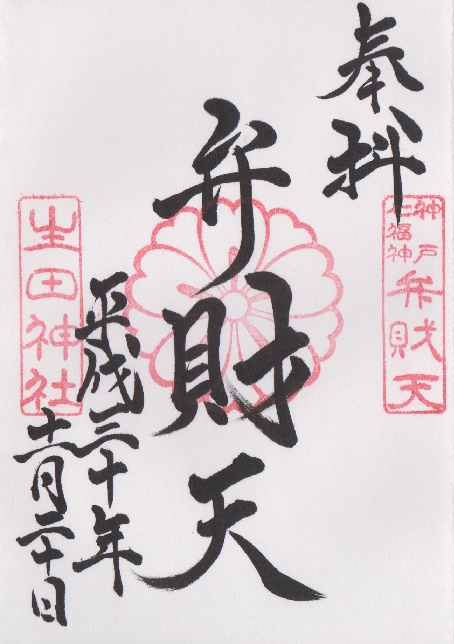 奉拝
神戸
七福神
弁財天
弁財天
平成三十年
十一月二十日
生田神社